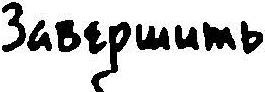 Завершить